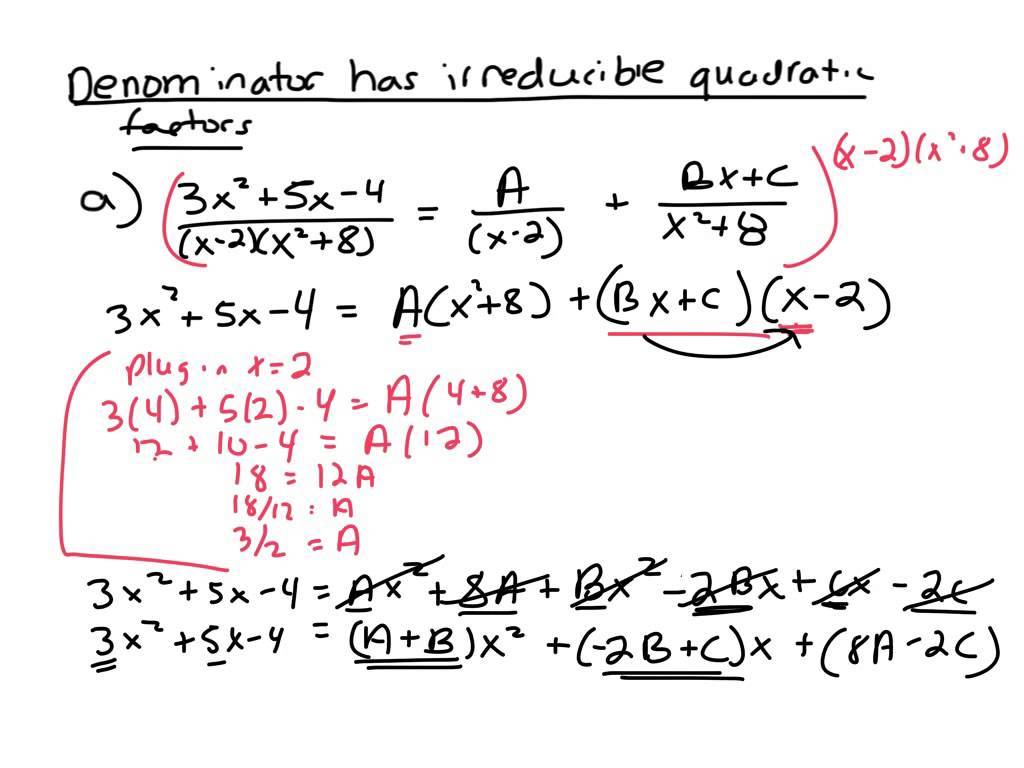 Denominator has irreducible quadratic
factors
a) 3x²+5x-4 / (x-2)(x²+8) = A / (x-2) + Bx+C / x²+8 (x-2)(x²+8)
3x²+5x-4 = A(x²+8) + (Bx+C)(x-2)
plug in x=2
3(4)+5(2)-4 = A(4+8)
12+10-4 = A(12)
18 = 12A
18/12 = A
3/2 = A
3x²+5x-4 = Ax²+8A+Bx²-2Bx+Cx-2C
3x²+5x-4 = (A+B)x²+(-2B+C)x+(8A-2C)